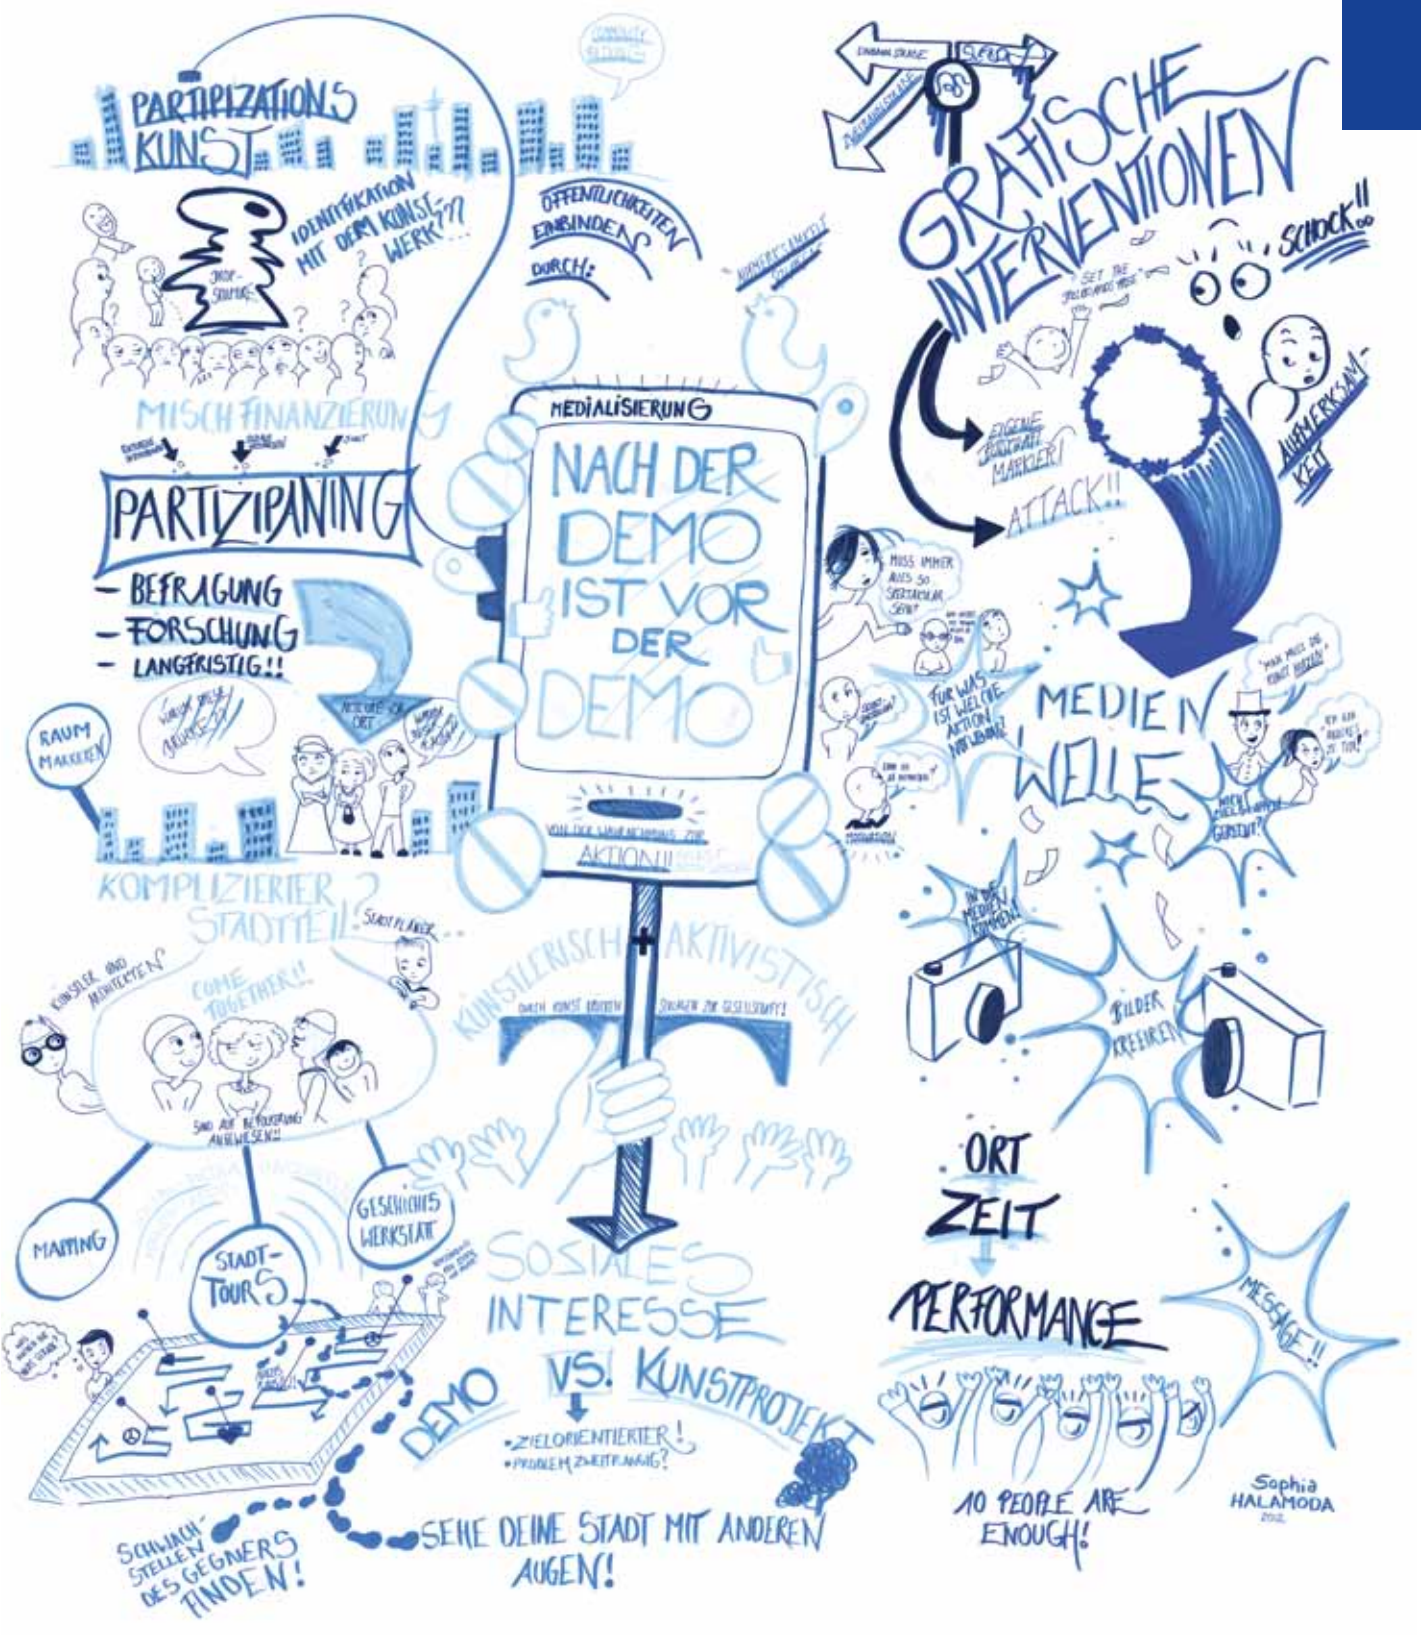 PARTIPIZATIONS
KUNST
IDENTIFIKATION
MIT DEM KUNST-
WERK???
DROP-
SKULPTURE
MISCHFINANZIERUNG
STADT
PARTIZIPANING
- BEFRAGUNG
- FORSCHUNG
- LANGFRISTIG!!
ORT
RAUM
MARKIEREN
KOMPLIZIERTER
STADTTEIL?
STADTPLANER
KÜNSTLER UND
ARCHITEKTEN
COME
TOGETHER!!
SIND AUF BEVÖLKERUNG
ANGEWIESEN!!
MAPPING
STADT-
TOURS
GESCHICHTS
WERKSTATT
SCHWACH-
STELLEN
DES GEGNERS
FINDEN!
ÖFFENTLICHKEITEN
EINBINDEN
DURCH:
MEDIALISIERUNG
NACH DER
DEMO
IST VOR
DER
DEMO
VON DER WAHRNEHMUNG ZUR
AKTION!!
KÜNSTLERISCH + AKTIVISTISCH
DURCH KUNST BRÜCKEN SCHLAGEN ZUR GESELLSCHAFT!
SOZIALES
INTERESSE
DEMO VS. KUNSTPROJEKT
• ZIELORIENTIERTER!
• PROBLEM ZWEITRANGIG?
SEHE DEINE STADT MIT ANDEREN
AUGEN!
EINBAHNSTRASSE
GRAFISCHE
INTERVENTIONEN
SCHOCK!!
AUFMERKSAM-
KEIT
EIGENE
BOTSCHAFT
MARKIERT
ATTACK!!
MUSS IMMER
ALLES SO
SPEKTAKULÄR
SEIN?
FÜR WAS
IST WELCHE
AKTION
NOTWENDIG?
MOTIVATION!
MEDIEN
WELLE
"MAN MUSS DIE
KUNST NUTZEN"
IN DIE
MEDIEN
KOMMEN!
BILDER
KREEIREN
ORT
ZEIT
PERFORMANCE
MESSAGE!!
10 PEOPLE ARE
ENOUGH!
Sophia
HALAMODA
2012